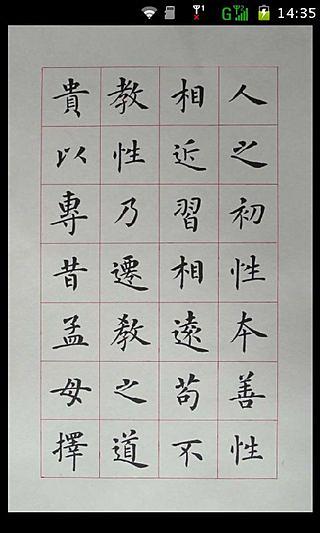 14:35
人之初性本善性
相近習相遠苟不
教性乃遷教之道
貴以專昔孟母擇